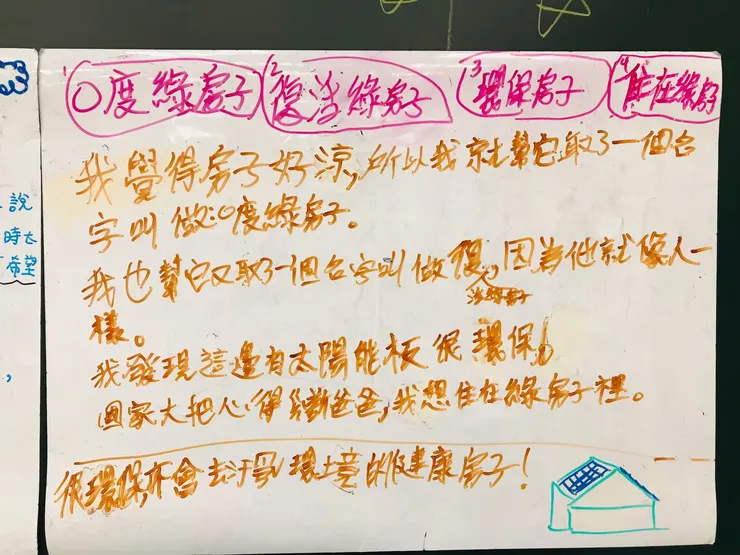 1 0度綠房子 2 復活綠房子 3 環保房子 4 住在綠房子
我覺得房子好涼,所以我就幫它取了一個名
字叫做:0度綠房子。
我也幫它又取了一個名字叫做復活綠房子,因為他就像人一
樣。
我發現這邊有太陽能板很環保!
國家大把心得 爸爸,我想住在綠房子裡。
很環保,不會 環境的健康房子!
說
時太
希望
,